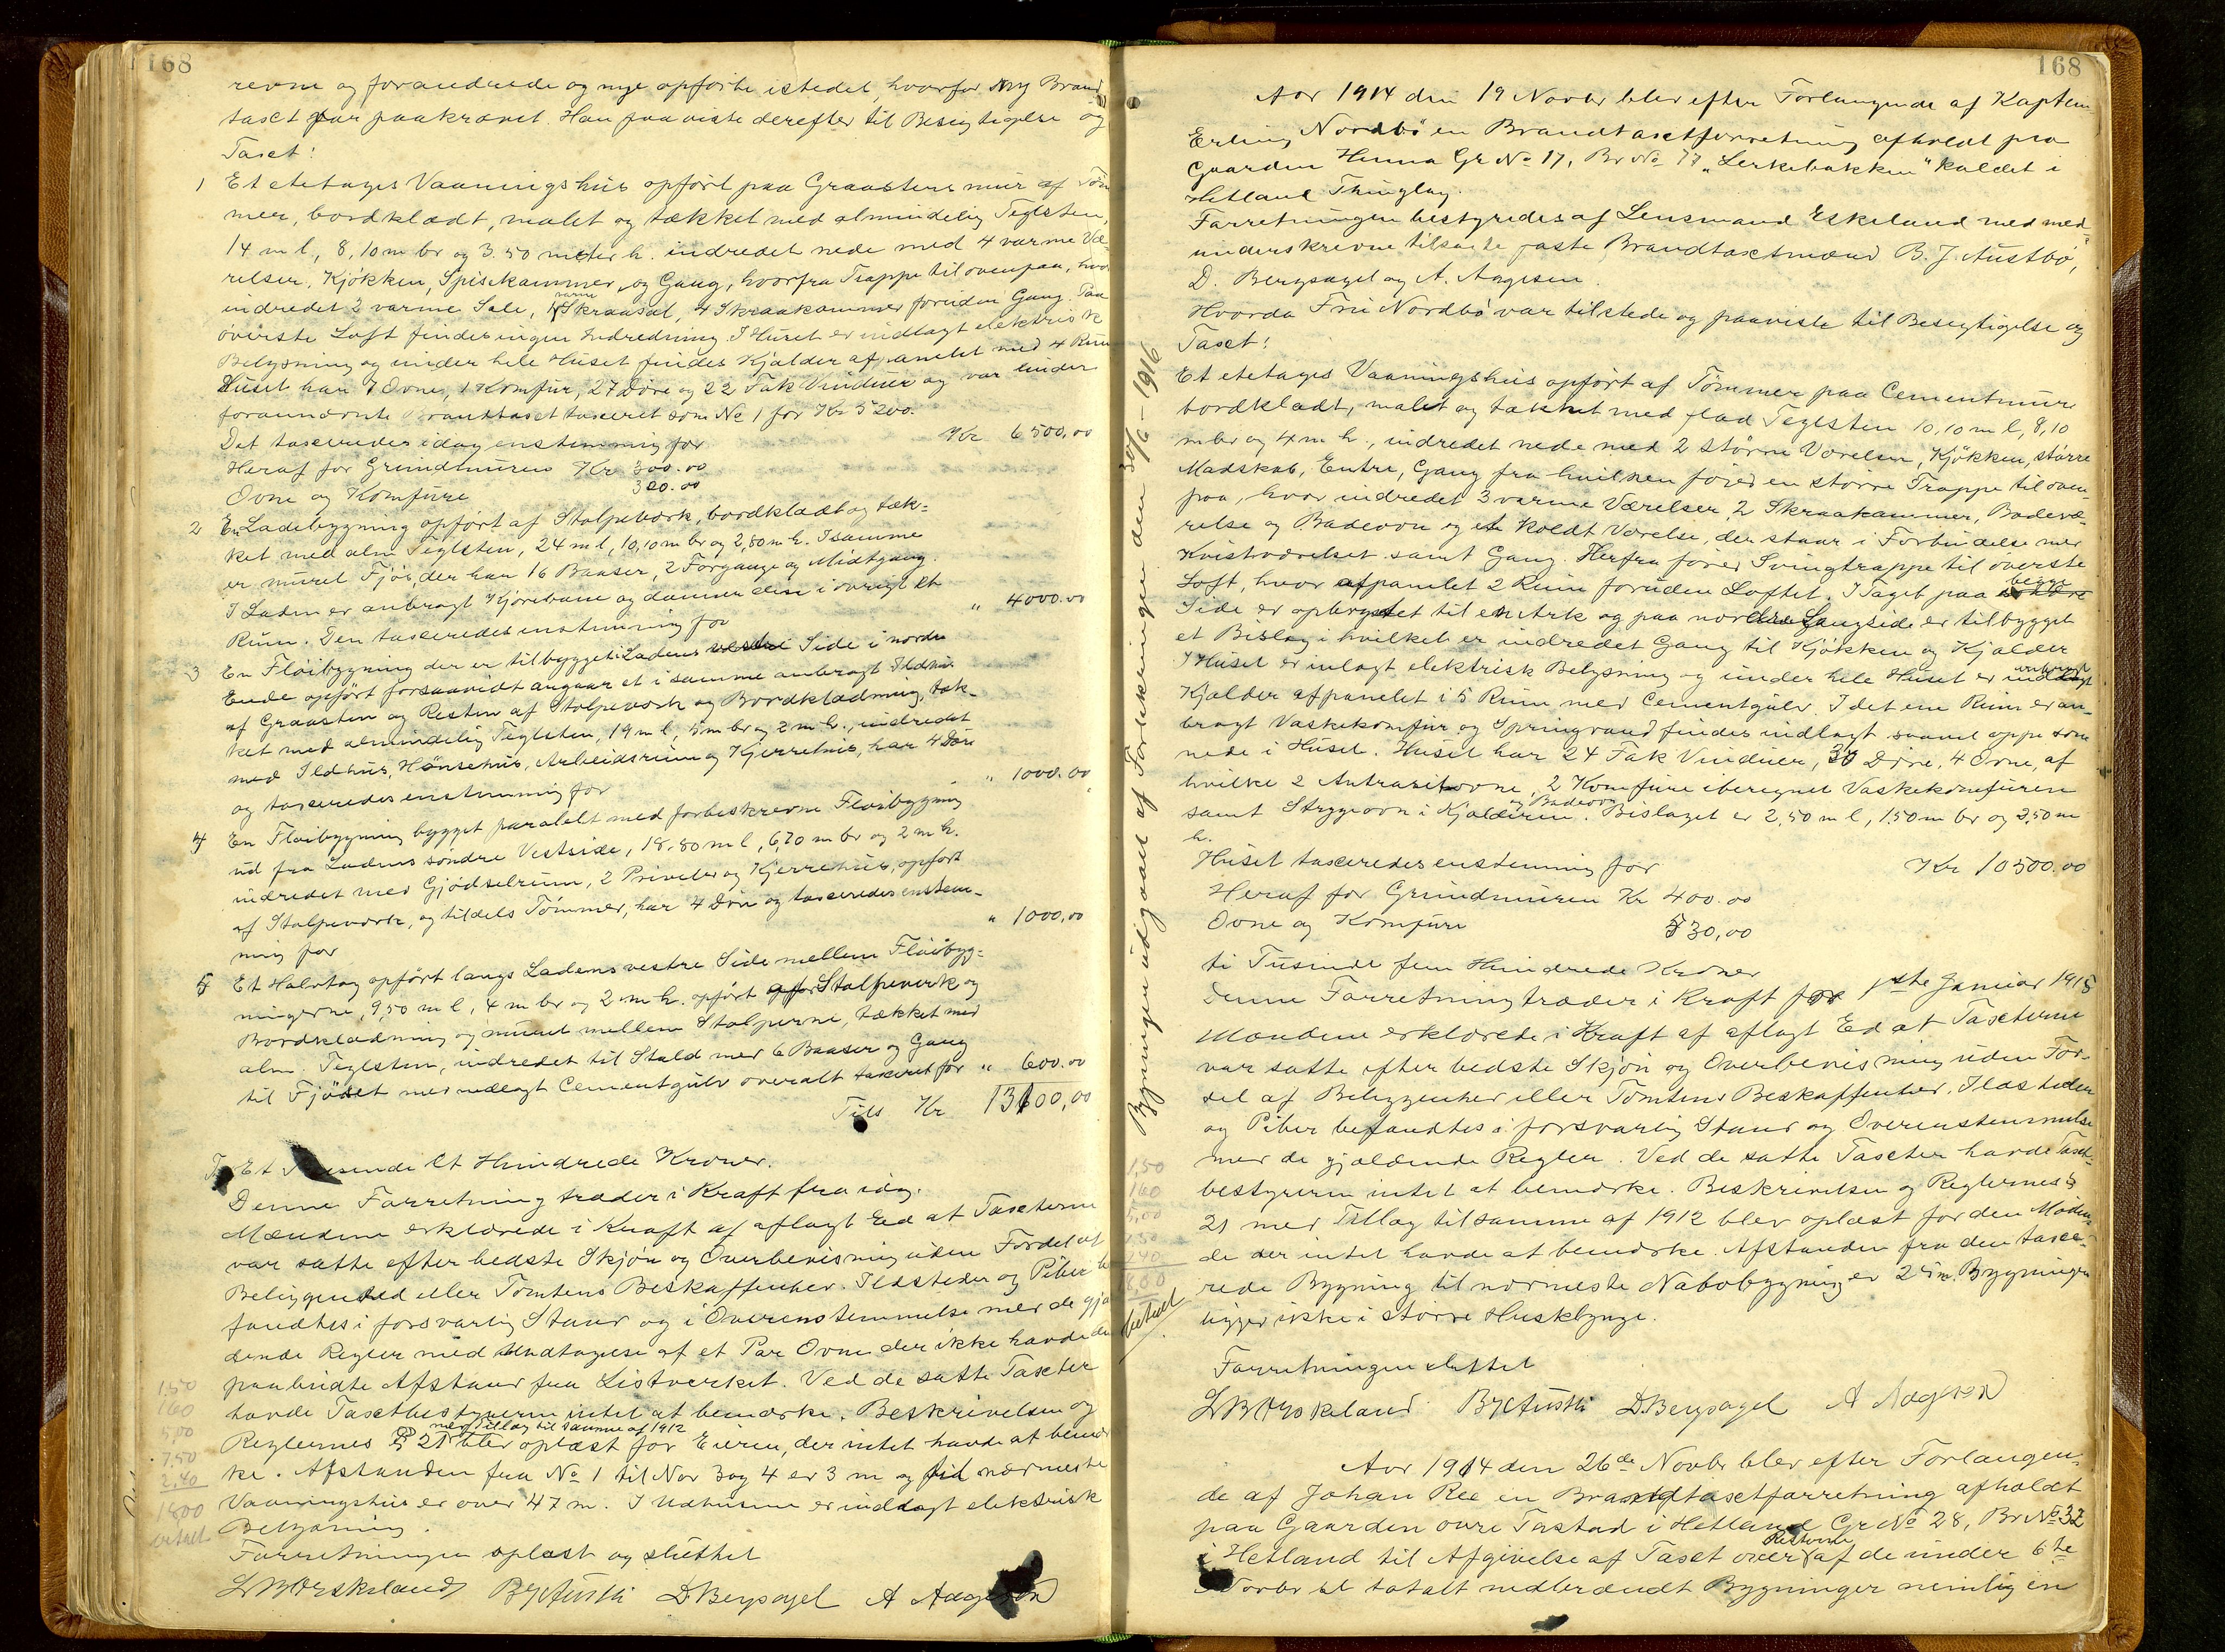 168
revne og forandrede og nye opførte istedet, hvorfor ny Brand
taxt var paakrævet. Han paaviste derefter til Besigtigelse og
Taxt:
1 Et etetages Vaaningshus opført paa Graastens mur af Tøm
mer, bordklædt, malet og tækket med almindelig Teglsten,
14 m l, 8,10 m br og 3.50 meter h. indredet nede med 4 varme Væ-
relser, Kjøkken, Spisekammer, og Gang, hvorfra Trappe til ovenpaa, hvor
indredet 2 varme Sale, 1 varm Skraasal, 4 Skraakammer foruden Gang. Paa
øverste Loft findes ingen Indredning. I Huset er indlagt elektrisk
Belysning og under hele Huset findes Kjælder afpanelet med 4 Rum
Huset har 7 Ovne, 1 Komfur, 27 Døre og 22 Fak Vinduer og var under
forannævnte Brandtaxt taxeret som No 1 for Kr 5200.
Det taxeredes idag enstemmig for Kr 6500,00
Heraf for Grundmuren Kr 300.00
Ovne og Komfure 320.00
2 En Ladebygning opført af Stolpeværk, bordklædt og tæk-
ket med alm Teglsten, 24 m l, 10,10 m br og 2,80 m h. I samme
er muret Fjøs, der har 16 Baaser, 2 Forgange og Midtgang.
I Laden er anbragt Kjørebane og danner den i øvrigt et
Rum. Den taxeredes enstemmig for " 4000.00
3 En Fløibygning der er tilbygget Ladens vestre Side i nordre
Ende opført forsaavidt angaar et i samme anbragt Ildhus
af Graasten og Resten af Stolpeværk og Bordklædning, tæk-
ket med almindelig Teglsten, 19 m l, 5 m br og 2 m h., indredet
med Ildhus, Hønsehus, Arbeidsrum og Kjerrehus, har 4 Døre
og taxeredes enstemmig for " 1000.00
4 En Fløibygning bygget paralelt med forbeskrevne Fløibygning
ud fra Ladens søndre Vestside, 18,80 m l, 6,70 m br og 2 m h.
indredet med Gjødselrum, 2 Priveter og Kjerrehus, opført
af Stolpeværk, og tildels Tømmer, har 4 Døre og taxeredes enstem-
mig for " 1000,00
5 Et Halvtag opført langs Ladens vestre Side mellem Fløibyg-
ningerne, 9,50 m l, 4 m br og 2 m h. opført Stolpeverk og
Bordklædning og muret mellem Stolperne, tækket med
alm. Teglsten, indredet til Stald med 6 Baaser og Gang
til Fjøset med nedlagt Cementgulv overalt taxeret for " 600.00
Tils Kr 13100,00
Et Hundrede Kroner.
Denne Forretning træder i Kraft fra idag.
Mændene erklærede i Kraft af aflagt Ed at Taxterne
var satte efter bedste Skjøn og Overbevisning uden Fordel af
Beliggenhed eller Tomtens Beskaffenhed. Ildsteder og Piber be
fandtes i forsvarlig Stand og i Overensstemmelse med de gjæ
dende Regler med Undtagelse af et Par Ovne der ikke havde den
paabudte Afstand fra Listverket. Ved de satte Taxter
havde Taxtbestyreren intet at bemærke. Beskrivelsen og
med Tillæg til samme af 1912
Reglernes § 21 blev oplæst for Eieren, der intet havde at bemær
ke. Afstanden fra No 1 til Nor 3 og 4 er 3 m og til nærmeste
Vaaningshus er over 47 m. I Udhusene er indlagt elektrisk
Belysning.
Forretningen oplæst og sluttet
1,50
160
5,00
7,50
2,40
18,00
betalt
D. Bergsagel A Aagesen
168
Aar 1914 den 19 Novbr blev efter Forlangende af Kaptein
Erling Nordbø en Brandtaxtforretning afholdt paa
Gaarden Hinna Gr No 17, Br No 77 "Lerkebakken" kaldet i
Hetland Thinglag.
Forretningen bestyredes af Lensmand Eskeland med med-
underskrevne tilsatte faste Brandtaxtmænd B. J. Austbø,
D. Bergsagel og A. Aagesen.
Hvorda Fru Nordbø var tilstede og paaviste til Besigtigelse og
Taxt:
Et etetages Vaaningshus opført af Tømmer paa Cementmur
bordklædt, malet og tækket med flad Teglsten 10,10 m l, 8,10
m br og 4 m h., indredet nede med 2 større Værelser, Kjøkken, større
Madskab, Entre, Gang fra hvilken fører en større Trappe til oven-
paa, hvor indredet 3 varme Værelser, 2 Skraakammer, Badevæ-
relse og Badeovn og et koldt Værelse, der staar i Forbindelse med
Kvistværelset samt Gang. Herfra fører Svingtrappe til øverste
Loft, hvor afpanelet 2 Rum foruden Loftet. I Taget paa begge
Side er opbrydtet til en Ark og paa nordre Langside er tilbygget
et Bislag i hvilket er indredet Gang til Kjøkken og Kjælder
I Huset er inlagt elektrisk Belysning og under hele Huset er anbragt
Kjælder afpanelet i 5 Rum med Cementgulv. I det ene Rum er an-
bragt Vaskekomfur og Springvand findes indlagt saavel oppe som
nede i Huset. Huset har 24 Fak Vinduer, 30 Døre, 4 Ovne, af
hvilke 2 Antrasitovne, 2 Komfure iberegnet Vaskekomfuren
samt Strygeovn i Kjælderen og Badeovn. Bislaget er 2,50 m l, 1.50 m br og 2,50 m
h.
Huset taxeredes enstemmig for Kr 10500.00
Heraf for Grundmuren Kr 400.00
Ovne og Komfure 530,00
ti Tusinde fem Hundrede Kroner
Denne Forretning træder i Kraft fra 1ste Januar 1915
Mændene erklærede i Kraft af aflagt Ed at Taxterne
var satte efter bedste Skjøn og Overbevisning uden For-
del af Beliggenhed eller Tomtens Beskaffenhed. Ildsteder
og Piber befandtes i forsvarlig Stand og Overensstemmelse
med de gjældende Regler. Ved de satte Taxter havde Taxt-
bestyreren intet at bemærke. Beskrivelsen og Reglernes §
21 med Tillæg til samme af 1912 blev oplæst for den Møden-
de der intet havde at bemærke. Afstanden fra den taxe-
rede Bygning til nærmeste Nabobygning er 25 m. Bygningen
ligger ikke i større Husklynge.
Forretningen sluttet
D. Bergsagel A Aagesen
1,50
160
5,00
betalt
Bygningen udgaaet af Forsikringen den 30/6-1916
Aar 1914 den 26de Novbr blev efter Forlangen-
de af Johan Ree en Brandtaxtforretning afholdt
paa Gaarden øvre Tastad i Hetland Gr No 28, Br No 32
i Hetland til Afgivelse af Taxt over Resterne af de under 6te
Novbr d.a. totalt nedbrændt Bygninger nemlig en